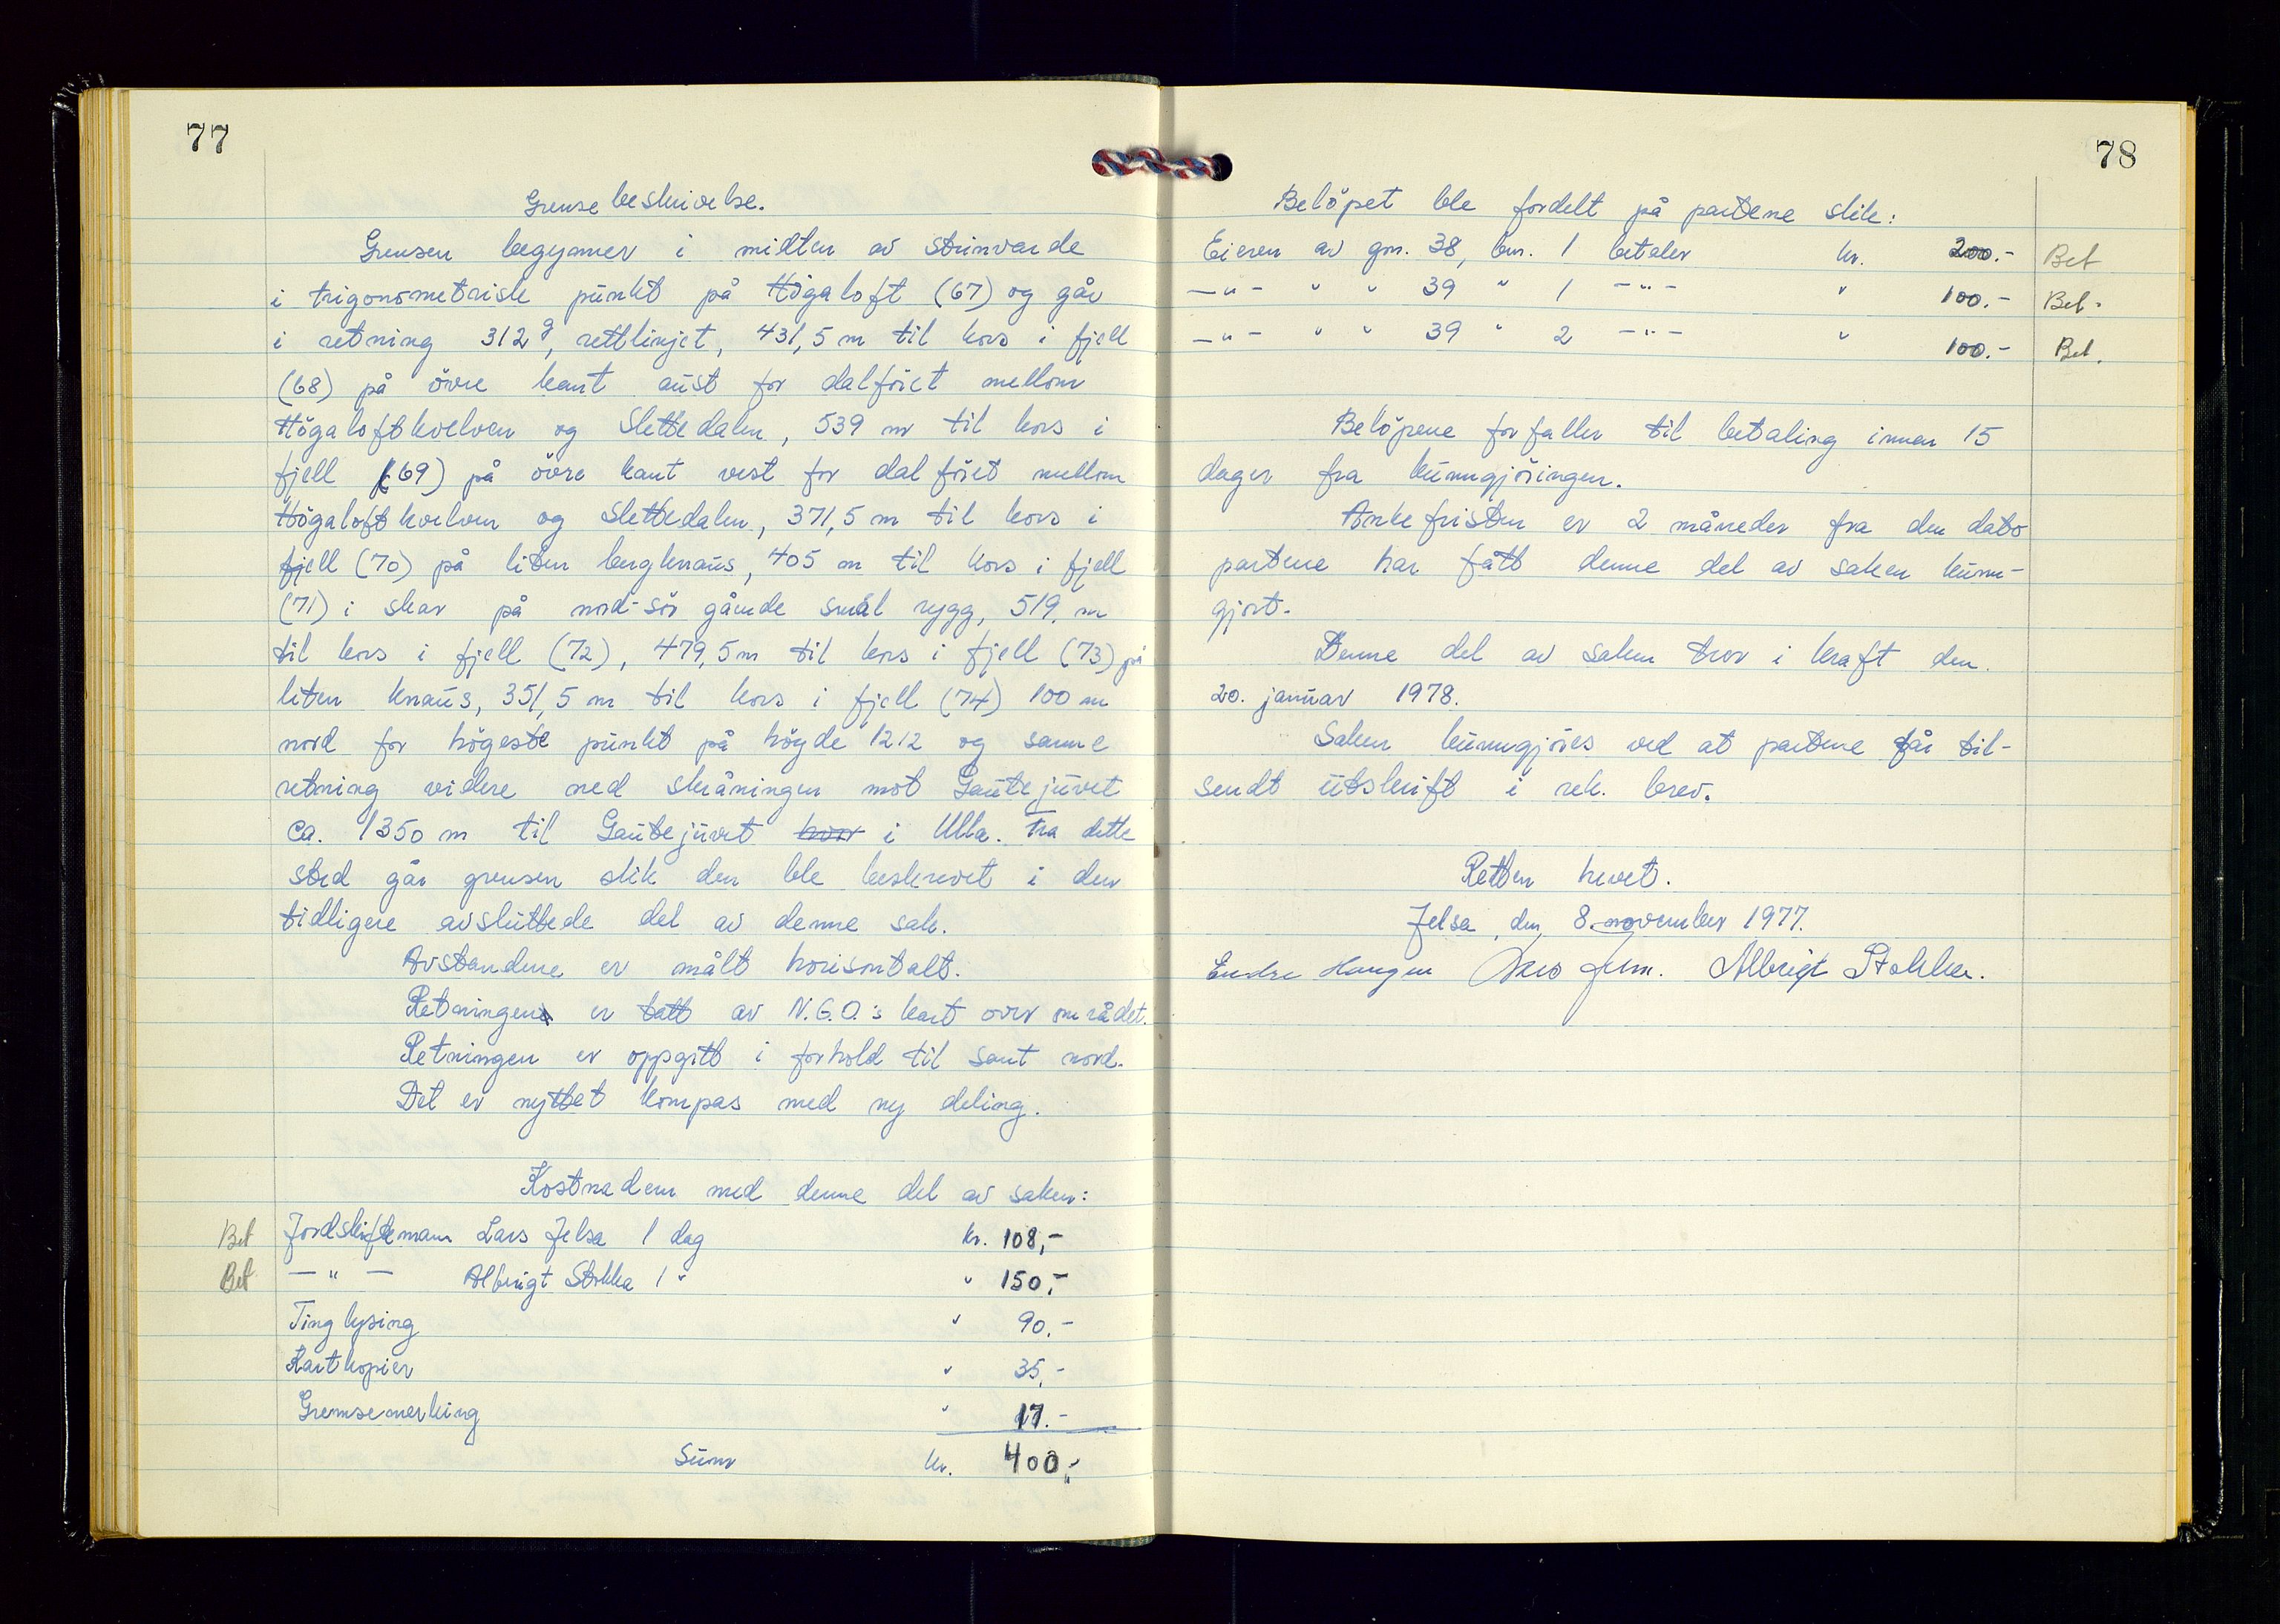 77
Grensebeskrivelse.
Grensen begynner i midten av steinvarde
i trigonometrisk punkt på Högaloft (67) og går
i retning 312g, rettlinjet, 431,5 m til kors i fjell
(68) på övre kant aust for dalföret mellom
Högaloftkvelven og Slettedalen, 539 m til kors i
fjell (69) på övre kant vest for dalföret mellom
Högaloftkvelven og Slettedalen, 371,5 m til kors i
fjell (70) på liten bergknaus, 405 m til kors i fjell
(71) i skar på nord-sör gående smal rygg, 519, m
til kors i fjell (72), 479,5 m til kors i fjell (73) på
liten knaus, 351,5 m til kors i fjell (74) 100 m
nord for högeste punkt på höyde 1212 og samme
retning videre ned skråningen mot Gautejuvet
ca. 1350 m til Gautejuvet hvor i Ulla. Fra dette
sted går grensen slik den ble beskrevet i den
tidligere avsluttede del av denne sak.
Avstandene er målt horisontalt.
Retningen er tatt av N.G.O.'s kart over området.
Retningen er oppgitt i forhold til sant nord.
Det er nyttet kompas med ny deling.
Kostnadene med denne del av saken:
Bet Jordskiftemann Lars Jelsa 1 dag kr. 108,-
Bet — " — Albrigt Stokka 1 " " 150,-
Tinglysing " 90.-
Kartkopier " 35,-
Grensemerking " 17.-
Sum kr. 400,-
78
Belöpet ble fordelt på partene slik:
Eieren av gnr. 38, bnr. 1 betaler kr. 200.- Bet
— " — " " 39 " 1 — " — " 100.- Bet.
— " — " " 39 " 2 — " — " 100.- Bet.
Belöpene forfaller til betaling innen 15
dager fra kunngjöringen.
Ankefristen er 2 måneder fra den dato
partene har fått denne del av saken kunn-
gjort.
Denne del av saken trer i kraft den
20. januar 1978.
Saken kunngjöres ved at partene får til-
sendt utskrift i rek. brev.
Retten hevet.
Jelsa, den 8. november 1977.
Endre Haugen Lars Jelsa. Albrigt Stokka.